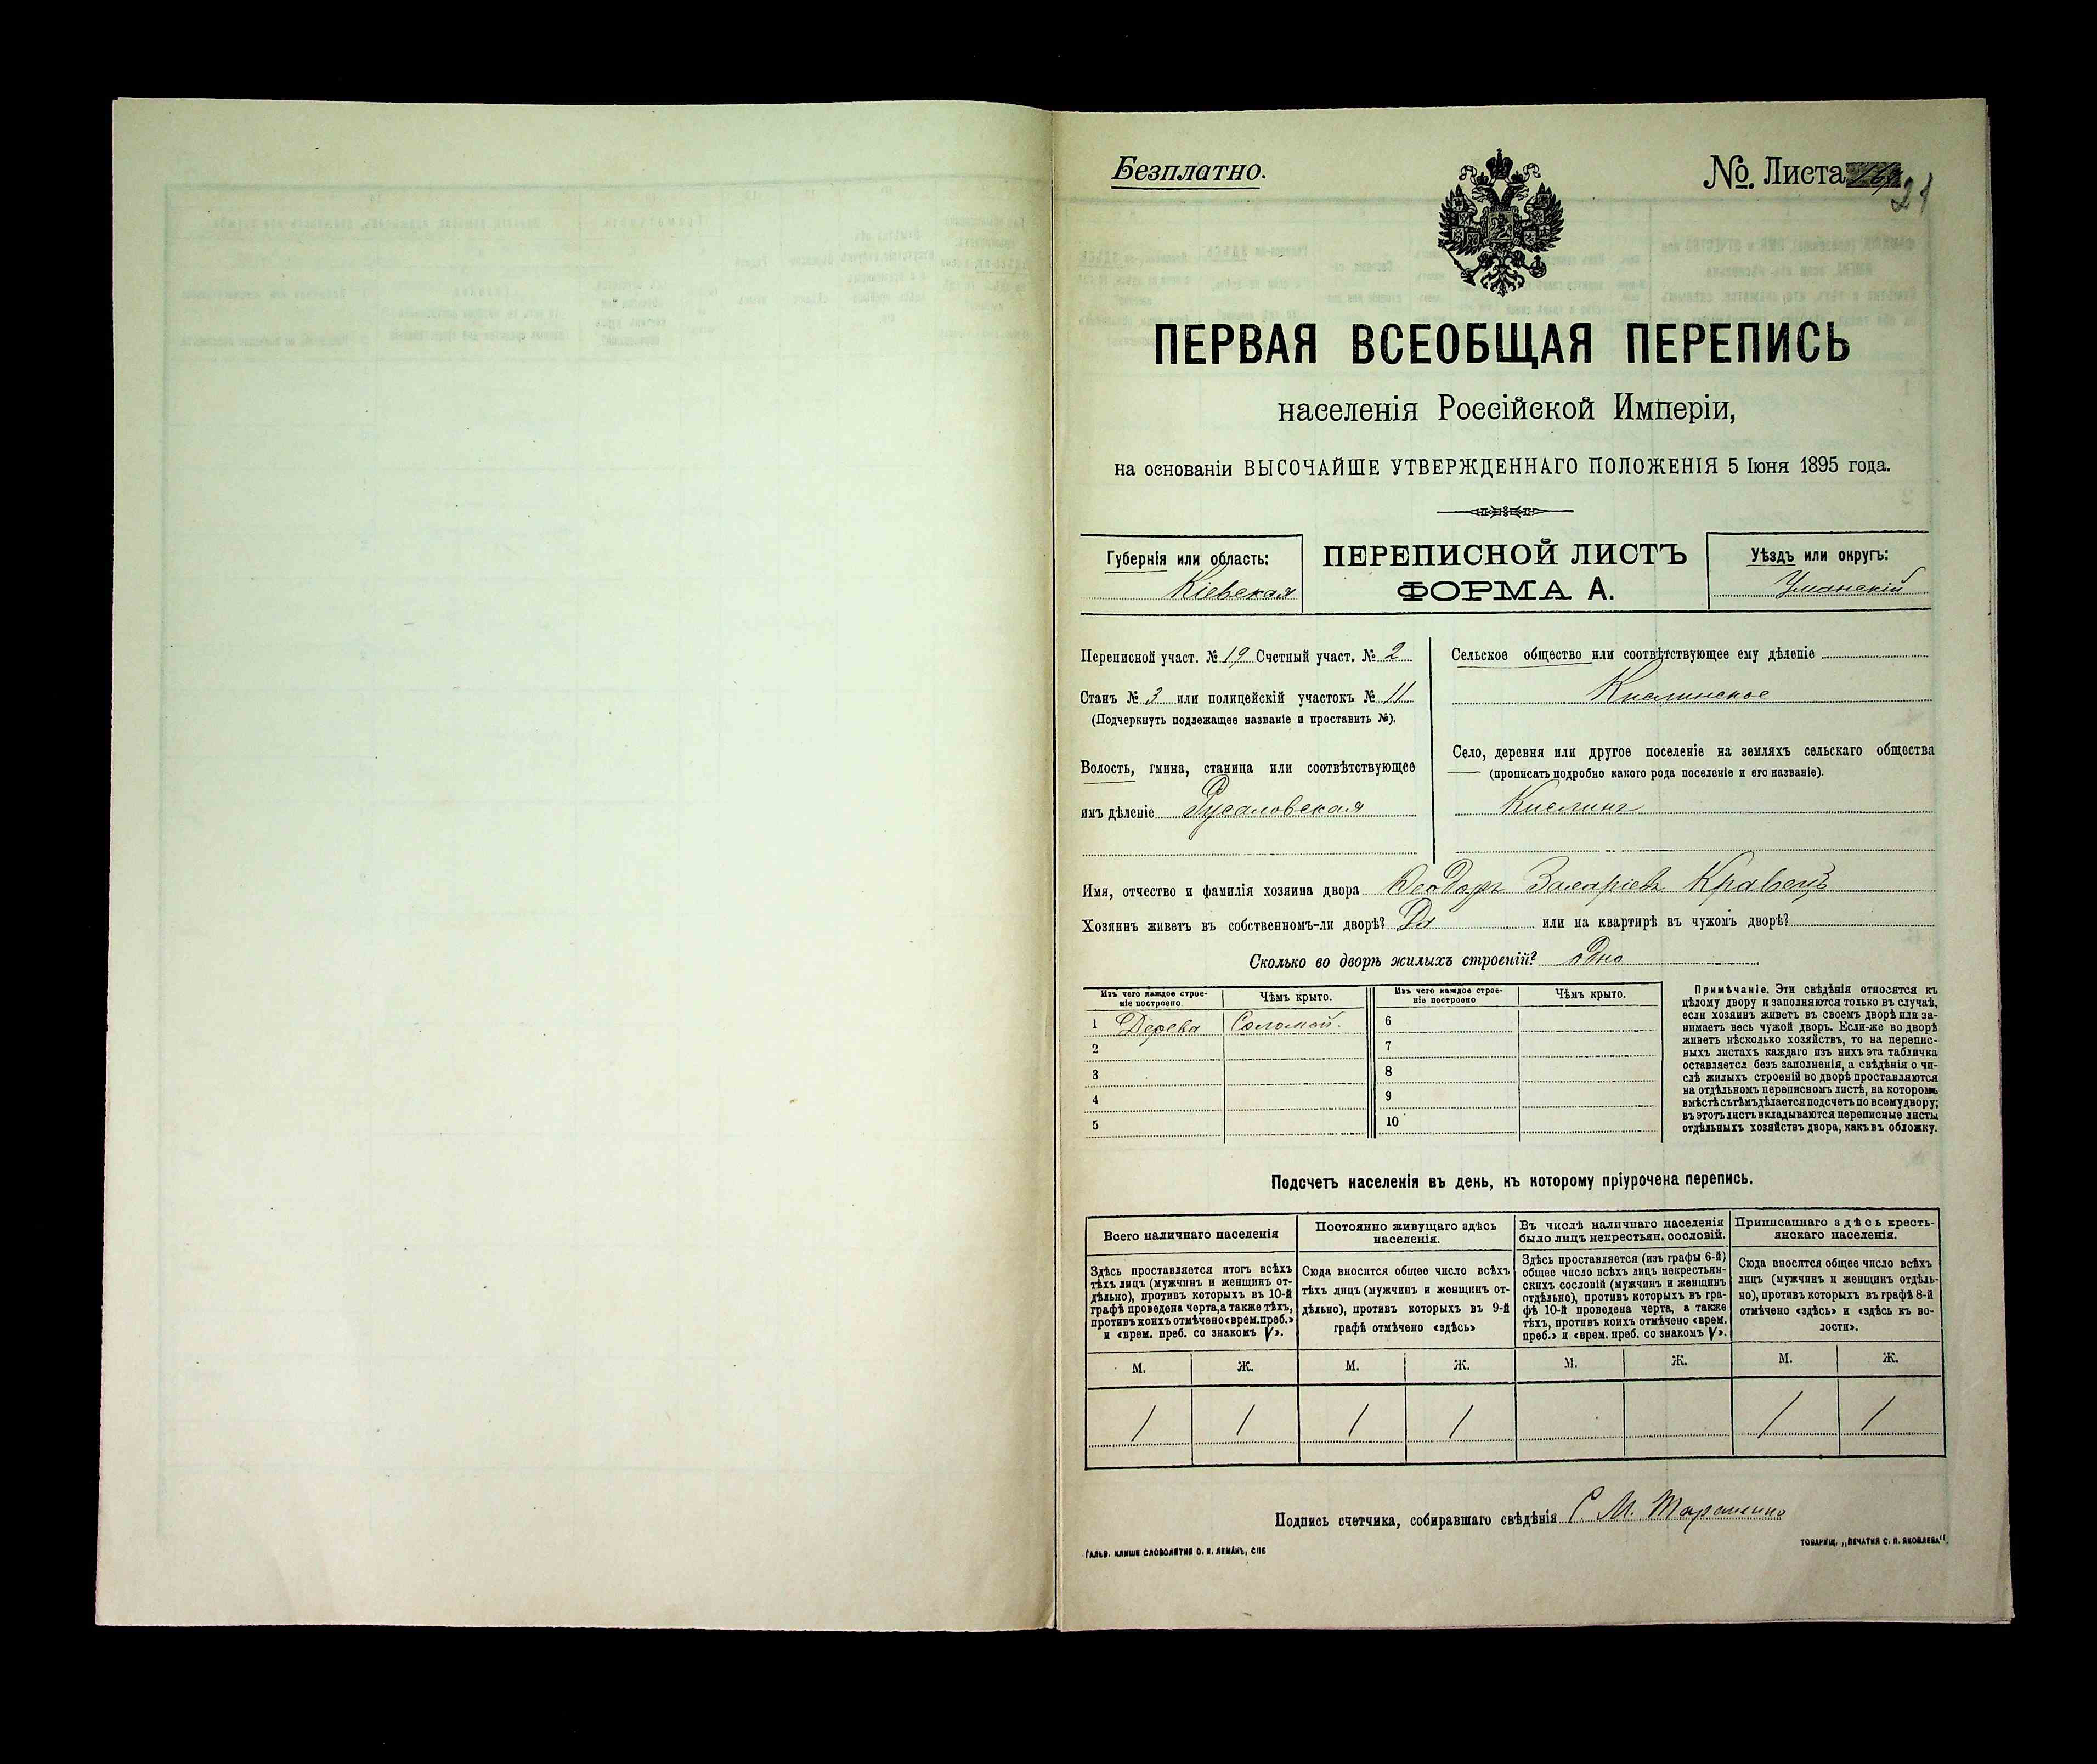 Безплатно.
№. Листа
21
ПЕРВАЯ ВСЕОБЩАЯ ПЕРЕПИСЬ
населенія Россійской Имперіи,
на основаніи ВЫСОЧАЙШЕ УТВЕРЖДЕННАГО ПОЛОЖЕНІЯ 5 Іюня 1895 года.
Губернія или область:
Кіевская
ПЕРЕПИСНОЙ ЛИСТЪ
ФОРМА А.
Уѣздъ или округъ:
Уманскій
Переписной участ. № 19 Счетный участ. № 2
Станъ № 3 или полицейскій участокъ № 11
(Подчеркнуть подлежащее названіе и проставить №).
Волость, гмина, станица или соотвѣтствующее
имъ дѣленіе Русаловская
Сельское общество или соотвѣтствующее ему дѣленіе
Кислинское
Село, деревня или другое поселеніе на земляхъ сельскаго общества
(прописать подробно какого рода поселеніе и его названіе).
Кислинъ
Имя, отчество и фамилія хозяина двора Ѳеодоръ Захаріевъ Кравецъ
Хозяинъ живетъ въ собственномъ-ли дворѣ? Да или на квартирѣ въ чужомъ дворѣ?
Сколько во дворѣ жилыхъ строеній? одно
Изъ чего каждое строе-
ніе построено.
Чѣмъ крыто.
Изъ чего каждое строе-
ніе построено
Чѣмъ крыто.
1 Дерева Соломой. 6
2 7
3 8
4 9
5 10
Примѣчаніе. Эти свѣдѣнія относятся къ
цѣлому двору и заполняются только въ случаѣ,
если хозяинъ живетъ въ своемъ дворѣ или за-
нимаетъ весь чужой дворъ. Если-же во дворѣ
живетъ нѣсколько хозяйствъ, то на перепис-
ныхъ листахъ каждаго изъ нихъ эта табличка
оставляется безъ заполненія, а свѣдѣнія о чи-
слѣ жилыхъ строеній во дворѣ проставляются
на отдѣльномъ переписномъ листѣ, на которомъ
вмѣстѣ съ тѣмъ дѣлается подсчетъ по всему двору;
въ этотъ листъ вкладываются переписные листы
отдѣльныхъ хозяйствъ двора, какъ въ обложку.
Подсчетъ населенія въ день, къ которому пріурочена перепись.
Всего наличнаго населенія
Постоянно живущаго здѣсь
населенія.
Въ числѣ наличнаго населенія
было лицъ некрестьян. сословій.
Приписаннаго здѣсь кресть-
янскаго населенія.
Здѣсь проставляется итогъ всѣхъ
тѣхъ лицъ (мужчинъ и женщинъ от-
дѣльно), противъ которыхъ въ 10-й
графѣ проведена черта, а также тѣхъ,
противъ коихъ отмѣчено «врем. преб.»
и «врем. преб. со знакомъ V».
Сюда вносится общее число всѣхъ
тѣхъ лицъ (мужчинъ и женщинъ от-
дѣльно), противъ которыхъ въ 9-й
графѣ отмѣчено «здѣсь»
Здѣсь проставляется (изъ графы 6-й)
общее число всѣхъ лицъ некрестьян-
скихъ сословій (мужчинъ и женщинъ
отдѣльно), противъ которыхъ въ гра-
фѣ 10-й проведена черта, а также
тѣхъ, противъ коихъ отмѣчено «врем.
преб.» и «врем. преб. со знакомъ V».
Сюда вносится общее число всѣхъ
лицъ (мужчинъ и женщинъ отдѣль-
но), противъ которыхъ въ графѣ 8-й
отмѣчено «здѣсь» и «здѣсь къ во-
лости».
М. Ж. М. Ж. М. Ж. М. Ж.
1 1 1 1 1 1
Подпись счетчика, собиравшаго свѣдѣнія С. М.
ГАЛЬВ. КЛИШЕ СЛОВОЛИТНИ О. И. ЛЕМАНЪ, СПБ
ТОВАРИЩ. „ПЕЧАТНЯ С. П. ЯКОВЛЕВА".